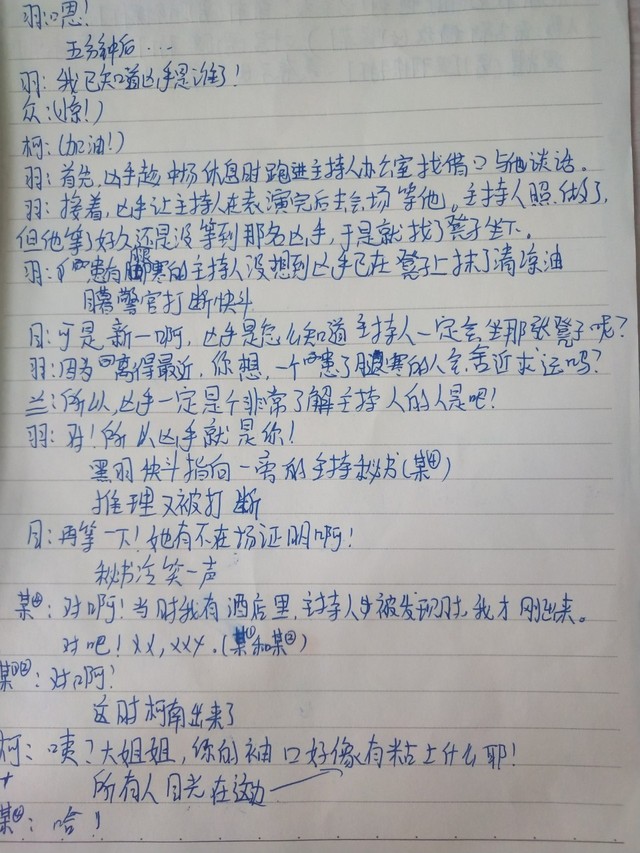 羽:嗯!
五分钟后...
羽:我已知道凶手是谁了!
众:(惊!)
柯:(加油!)
羽:首先,凶手趁中场休息时跑进主持人办公室找借口与他谈话。
羽:接着,凶手让主持人在表演完后去会场等他。主持人照做了,
但他等了好久还是没等到那名凶手,于是就找了凳子坐下。
羽:患有寒的主持人没想到凶手已在凳子上抹了清凉油
目暮警官打断快斗
目:可是新一啊,凶手是怎么知道主持人一定会坐那张凳子呢?
羽:因为离得最近,你想,一个患了寒的人会舍近求远吗?
兰:所以,凶手一定是个非常了解主持人的人是吧!
羽:对!所以凶手就是你!
黑羽快斗指向一旁的主持秘书(某④)
推理又被打断
目:再等一下!她有不在场证明啊!
秘书冷笑一声
某④:对啊!当时我有酒店里,主持人被发现时,我才刚出来。
对吧!XX,XXX.(某①和某②)
某①②:对啊?
这时柯南出来了
柯:咦?大姐姐,你的袖口好像有粘上什么耶!
所有人目光在这边
某④:哈!